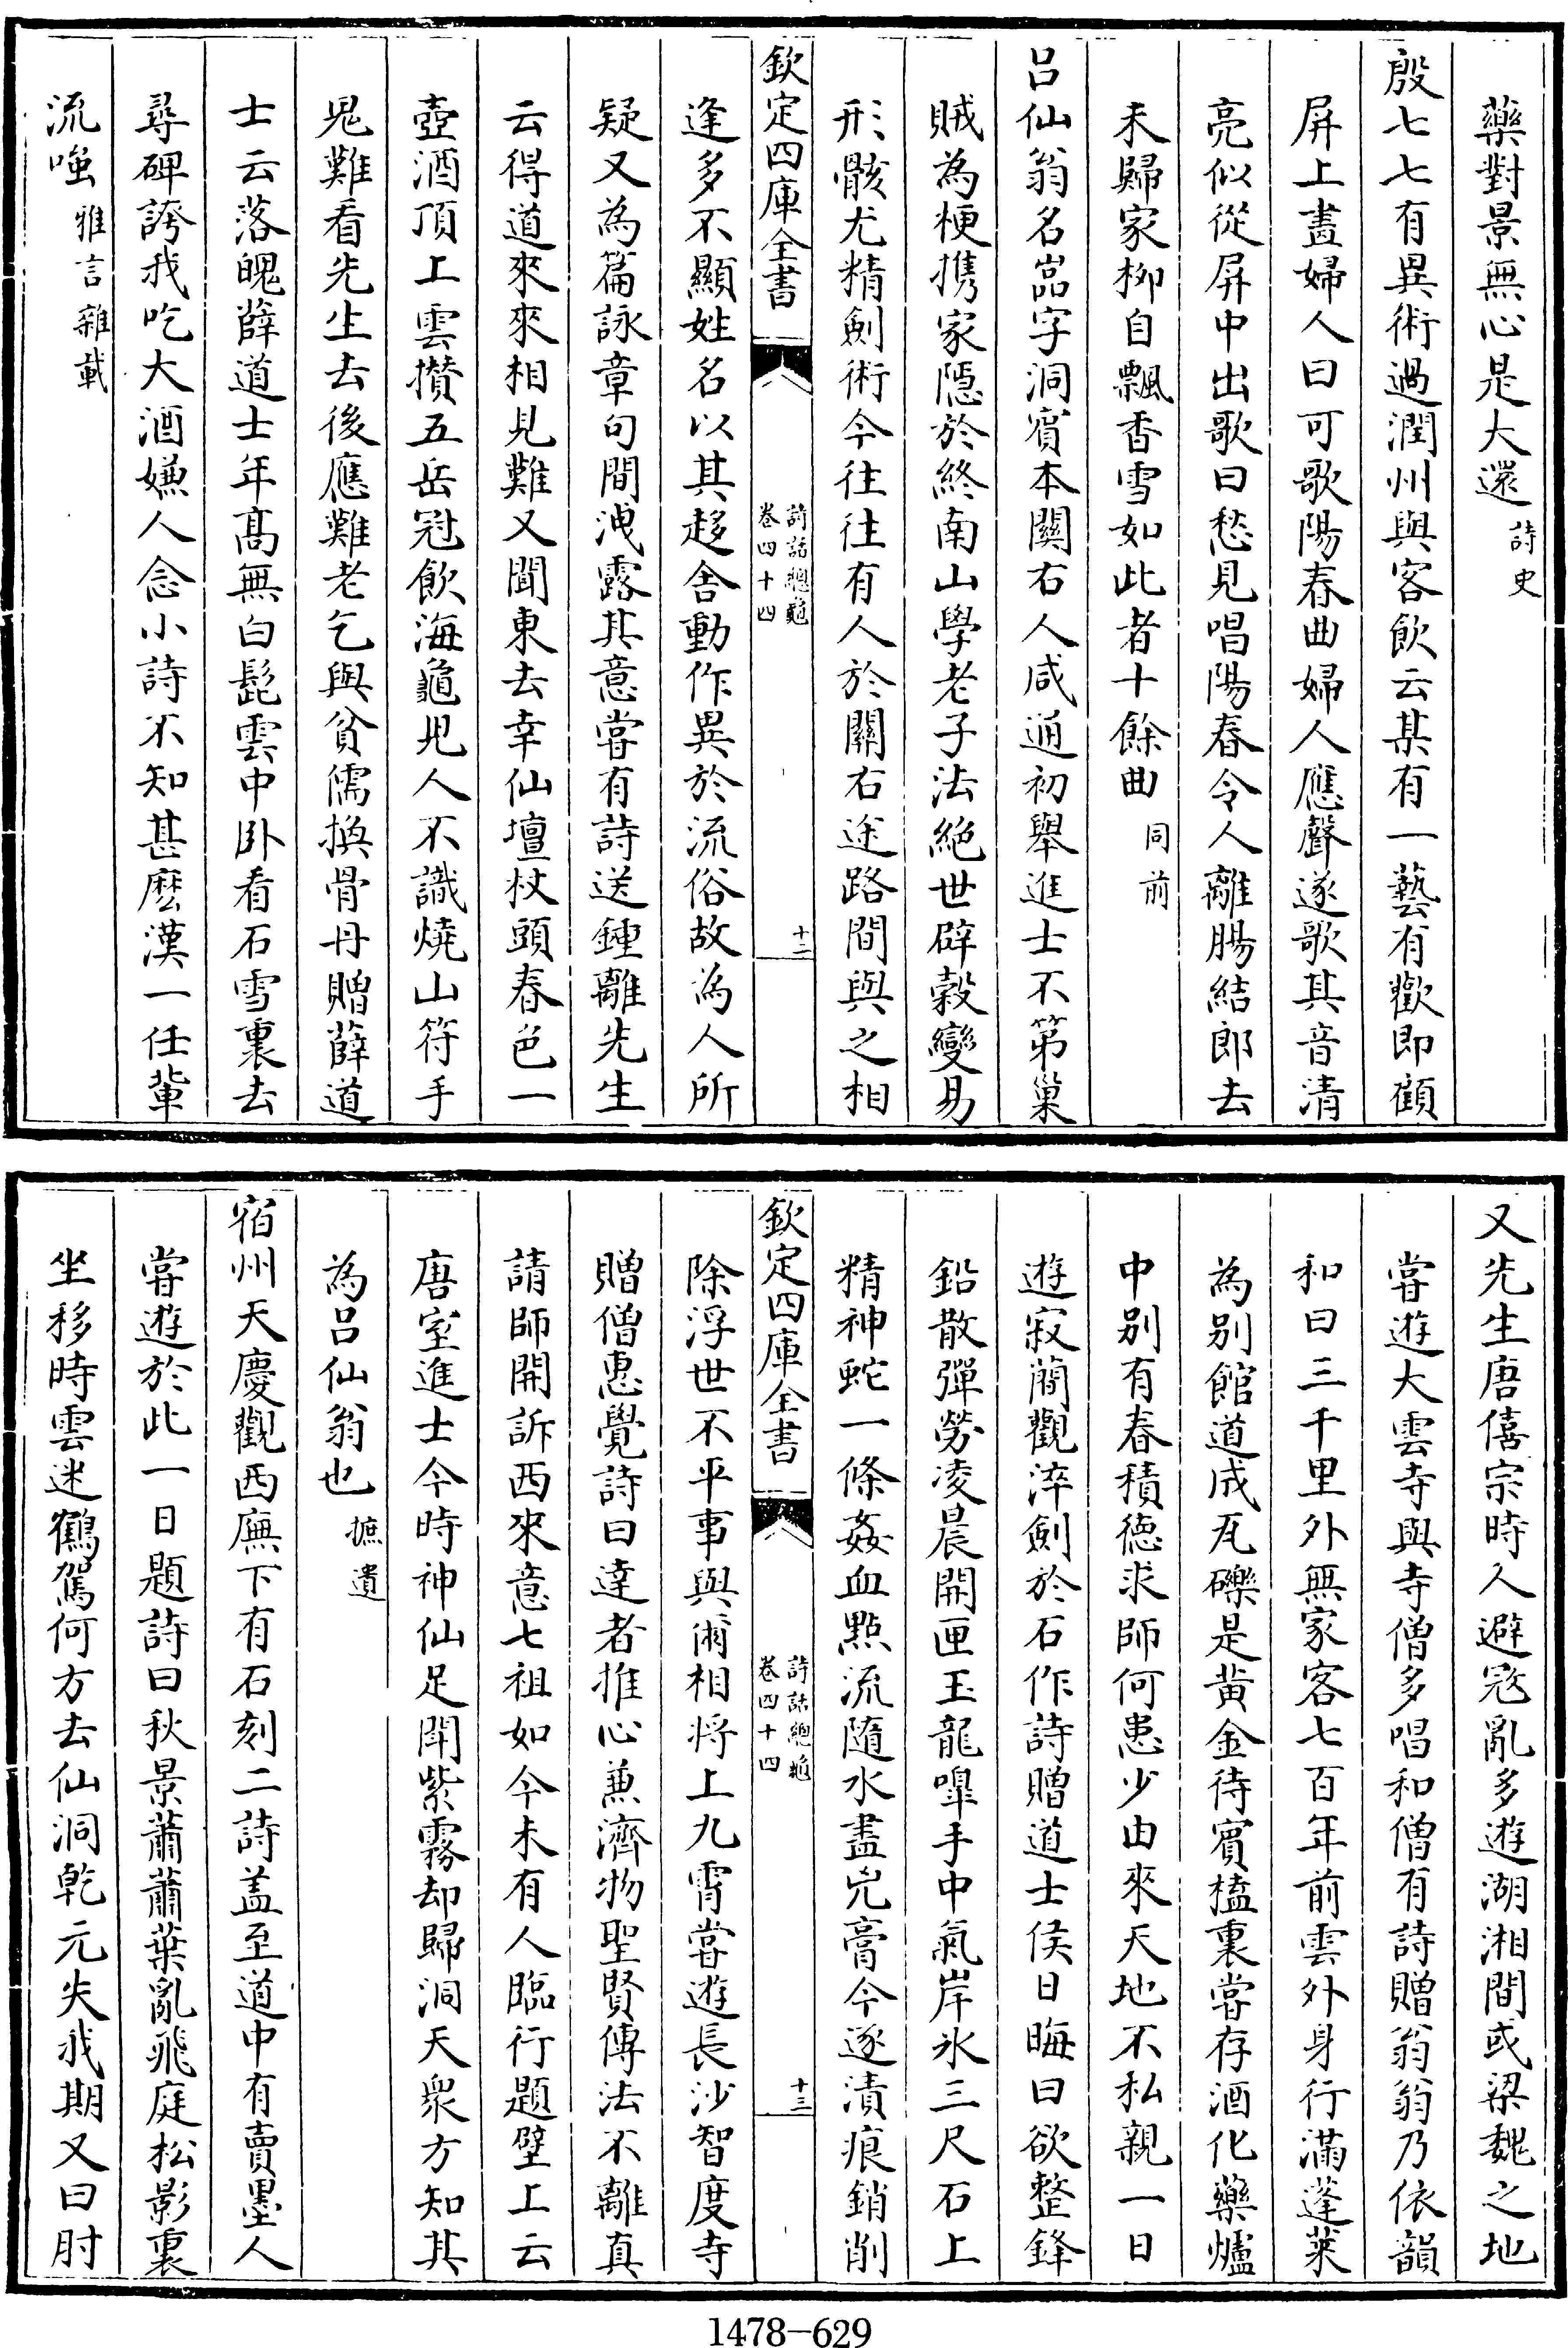 藥對景無心是大還詩史
殷七七有異術過潤州與客飲云某有一藝有歡即顧
屏上畫婦人曰可歌陽春曲婦人應聲遂歌其音清
亮似從屏中出歌曰愁見唱陽春令人離腸結郎去
未歸家柳自飄香雪如此者十餘曲同前
呂仙翁名嵒字洞賓本關右人咸通初舉進士不第巢
賊為梗携家隱於終南山學老子法絕世辟穀變易
形骸尤精劍術今往往有人於關右途路間與之相
欽定四庫全書
詩話總龜
卷四十四
十二
逢多不顯姓名以其趍舍動作異於流俗故為人所
疑又為篇詠章句間洩露其意嘗有詩送鍾離先生
云得道來來相見難又聞東去幸仙壇杖頭春色一
壺酒頂上雲攢五岳冠飲海龜児人不識燒山符手
鬼難看先生去後應難老乞與貧儒換骨丹贈薛道
士云落魄薛道士年髙無白髭雲中卧看石雪裏去
尋碑誇我吃大酒嫌人念小詩不知甚麽漢一任輩
流嗤雅言雜載
又先生唐僖宗時人避寇亂多遊湖湘間或梁魏之地
嘗遊大雲寺與寺僧多唱和僧有詩贈翁翁乃依韻
和曰三千里外無家客七百年前雲外身行滿蓬萊
為别館道成瓦礫是黄金待賓榼裏嘗存酒化藥爐
中别有春積德求師何患少由來天地不私親一日
遊寂簡觀淬劍於石作詩贈道士侯日晦曰欲整鋒
鉛散彈勞凌晨開匣玉龍嘷手中氣岸氷三尺石上
精神蛇一條姦血㸃流隨水盡兇膏今逐漬痕銷削
欽定四庫全書
詩話總龜
卷四十四
十三
除浮世不平事與爾相將上九霄嘗遊長沙智度寺
贈僧惠覺詩曰達者推心兼濟物聖賢傳法不離真
請師開訴西來意七祖如今未有人臨行題壁上云
唐室進士今時神仙足開紫霧却歸洞天衆方知其
為呂仙翁也摭遺
宿州天慶觀西廡下有石刻二詩葢至道中有賣墨人
嘗遊於此一日題詩曰秋景蕭蕭葉亂飛庭松影裏
坐移時雲迷鶴駕何方去仙洞乾元失我期又曰肘
1478-629